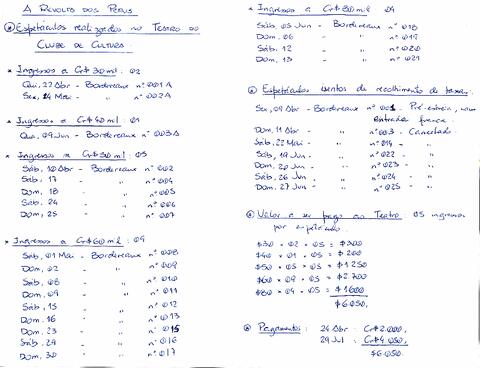 A REVOLTA DOS PERUS
⊛ Espetáculos realizados no TEATRO DO
CLUBE DE CULTURA.
* Ingressos a Cr$ 30 mil: 02
Qui, 22 Abr - Bordereaux nº 001A
Sex, 14 Mai - " nº 002A
* Ingressos a Cr$ 40 mil: 01
Qua, 09 Jun - Bordereaux nº 003A
* Ingressos a Cr$ 50 mil: 05
Sáb, 10 Abr - Bordereaux nº 002
Sáb, 17 " nº 004
Dom, 18 " nº 005
Sáb, 24 " nº 006
Dom, 25 " nº 007
* Ingressos a Cr$ 60 mil: 09
Sáb, 01 Mai - Bordereaux nº 008
Dom, 02 " nº 009
Sáb, 08 " nº 010
Dom, 09 " nº 011
Sáb, 15 " nº 012
Dom, 16 " nº 013
Dom, 23 " nº 015
Sáb, 29 " nº 016
Dom, 30 " nº 017
* Ingressos a Cr$ 80 mil: 04
Sáb, 05 Jun - Bordereaux nº 018
Dom, 06 " nº 019
Sáb, 12 " nº 020
Dom, 13 " nº 021
⊛ Espetáculos isentos do recolhimento de taxas.
Sex, 09 Abr - Bordereaux nº 001 - Pré-estréia, com
entrada franca.
Dom, 11 Abr - " nº 003 - Cancelado.
Sáb, 22 Mai - " nº 014 - "
Sáb, 19 Jun - " nº 022 - "
Dom, 20 Jun - " nº 023 - "
Sáb, 26 Jun - " nº 024 - "
Dom, 27 Jun - " nº 025 - "
⊛ Valor a ser pago ao Teatro: 05 ingressos
por espetáculo.
$30 . 02 . 05 = $300
$40 . 01 . 05 = $200
$50 . 05 . 05 = $1250
$60 . 09 . 05 = $2.700
$80 . 04 . 05 = $1600
$6.050,
⊛ Pagamentos: 24 Abr - Cr$ 2.000,
29 Jul : Cr$ 4.050,
$6.050,